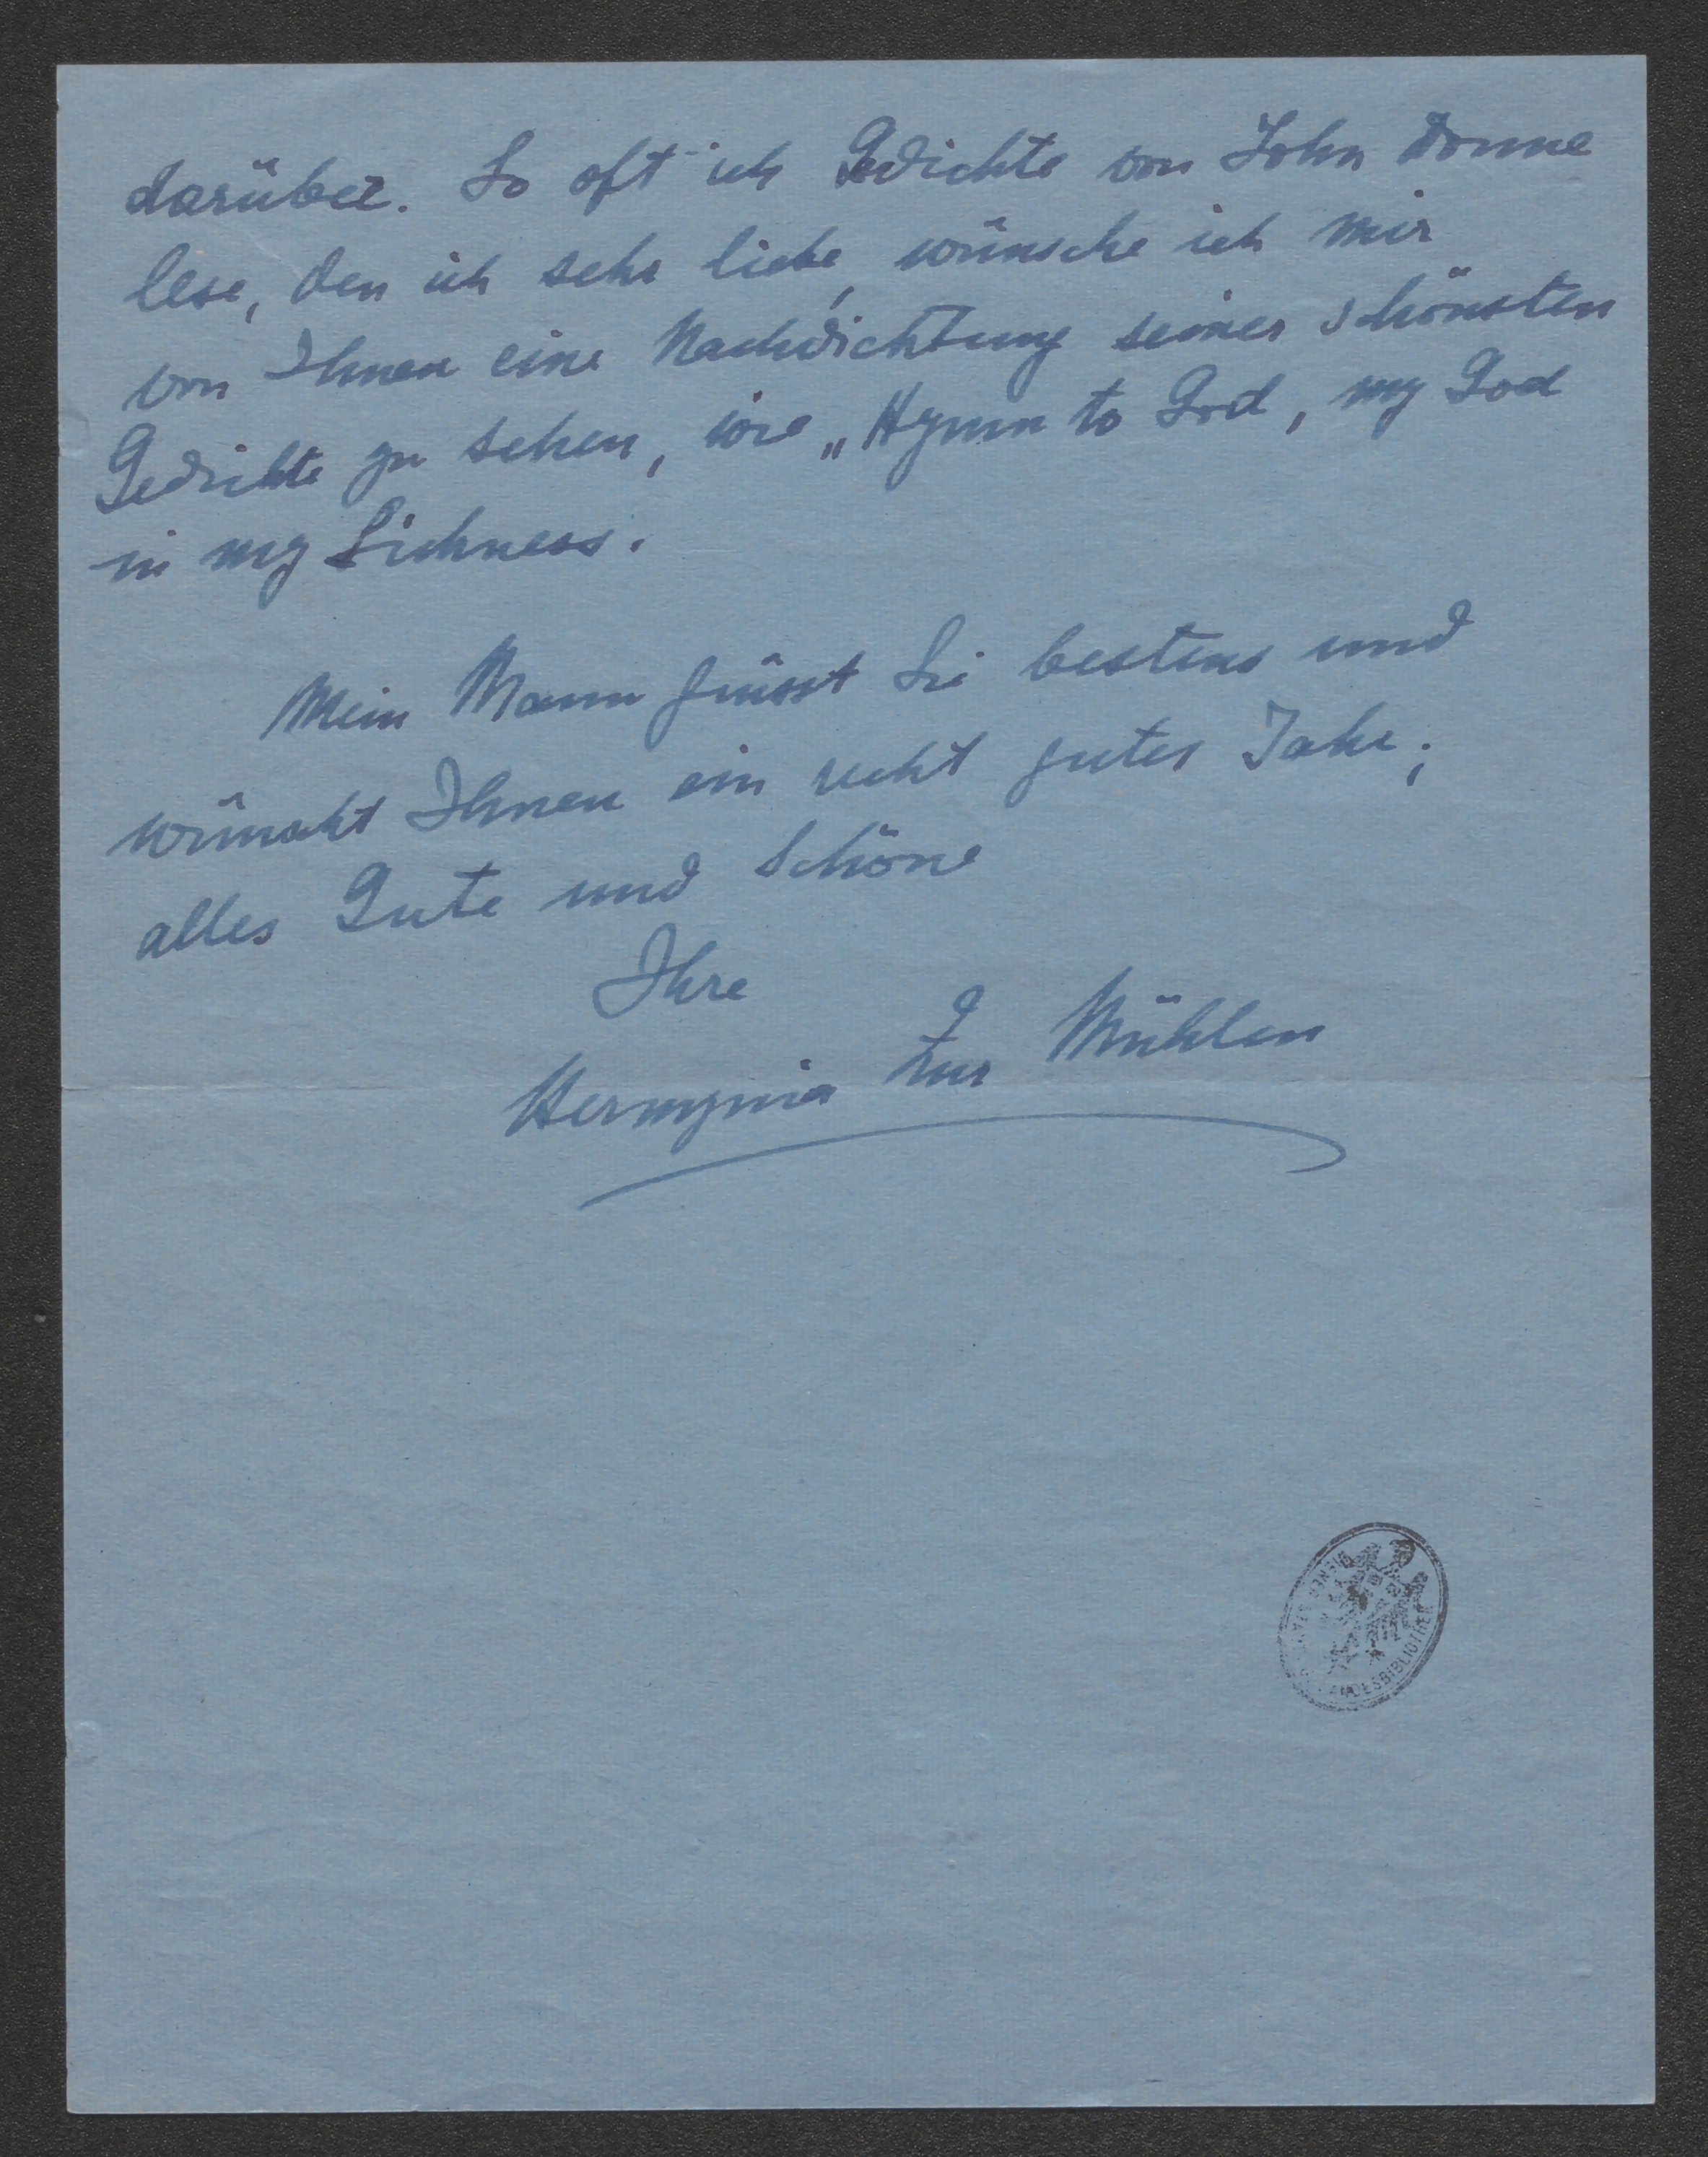 darüber. So oft ich Gedichte von John Donne
lese, den ich sehr liebe, wünsche ich mir
von Ihnen eine Nachdichtung seiner schönsten
Gedichte zu sehen, wie „Hymn to God, my God
in my Sickness.
Mein Mann grüsst Sie bestens und
wünscht Ihnen ein recht gutes Jahr;
alles Gute und Schöne
Ihre
Hermynia Zur Mühlen
WIENER STADT- U. LANDESBIBLIOTHEK